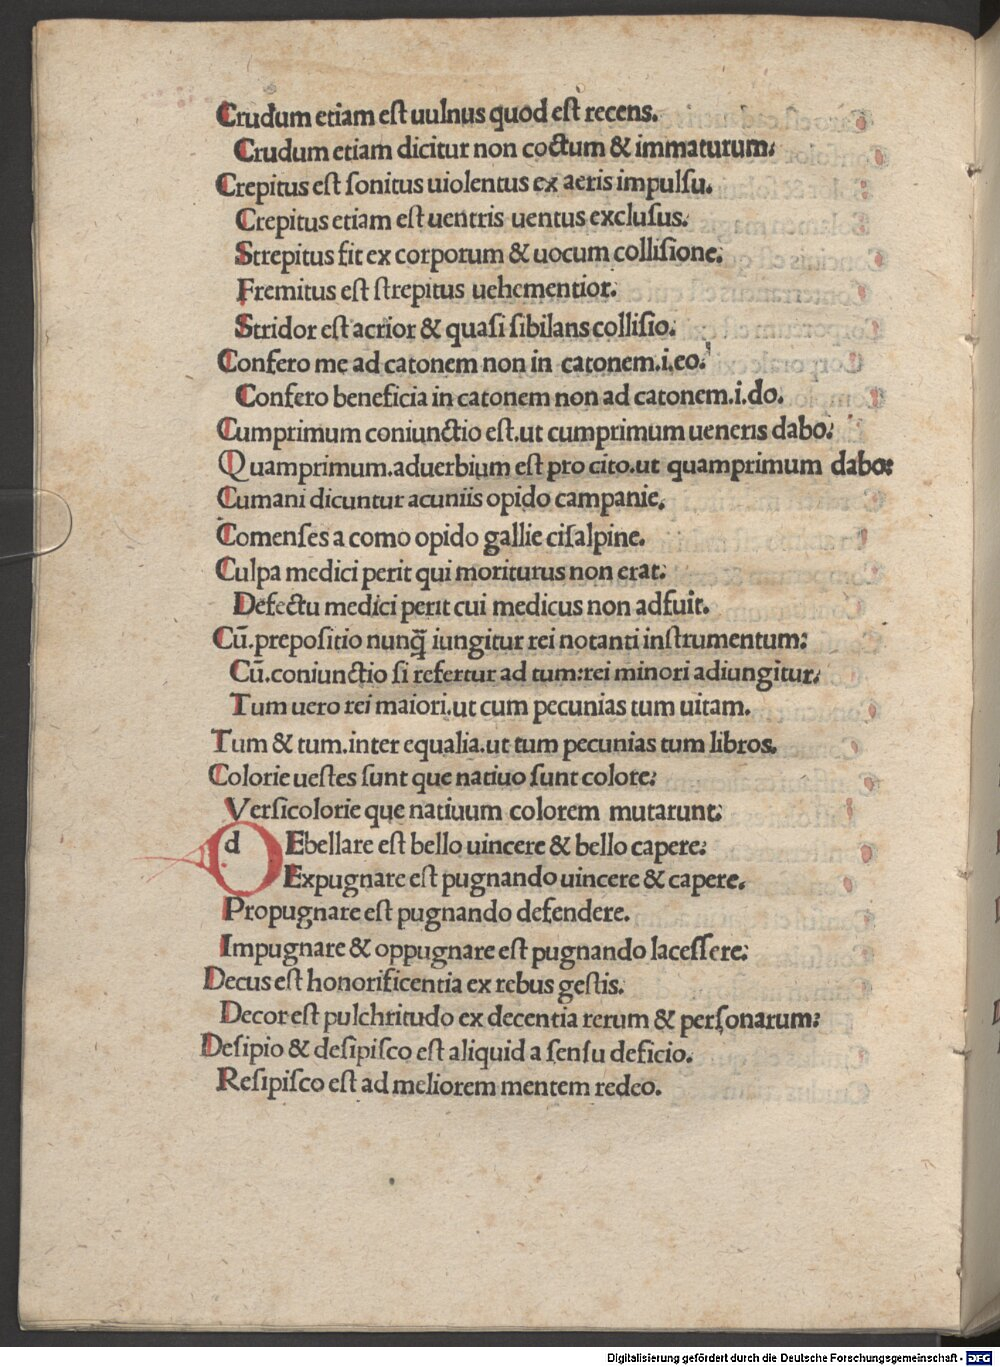 Crudum etiam eſt uulnus quod eſt recens.
Crudum etiam dicitur non coctum & immaturum:
Crepitus eſt ſonitus uiolentus ex aeris impulſu.
Crepitus etiam eſt uentris uentus excluſus:
Strepitus fit ex corporum & uocum colliſione.
Fremitus eſt ſtrepitus uehementior:
Stridor eſt acrior & quaſi ſibilans colliſio.
Confero me ad catonem non in catonem.i.eo.
Confero beneficia in catonem non ad catonem.i.do.
Cumprimum coniunctio eſt.ut cumprimum ueneris dabo:
Quamprimum.aduerbium eſt pro cito.ut quamprimum dabo:
Cumani dicuntur acuniis opido campanie.
Comenſes a como opido gallie ciſalpine.
Culpa medici perit qui moriturus non erat:
Defectu medici perit cui medicus non adfuit.
Cū.prepoſitio nunq̃ iungitur rei notanti inſtrumentum:
Cū.coniunctio ſi refertur ad tum:rei minori adiungitur:
Tum uero rei maiori.ut cum pecunias tum uitam.
Tum & tum.inter equalia.ut tum pecunias tum libros.
Colorie ueſtes ſunt que natiuo ſunt colore:
Verſicolorie que natiuum colorem mutarunt:
d Ebellare eſt bello uincere & bello capere:
Expugnare eſt pugnando uincere & capere.
Propugnare eſt pugnando defendere.
Impugnare & oppugnare eſt pugnando laceſſere:
Decus eſt honorificentia ex rebus geſtis.
Decor eſt pulchritudo ex decentia rerum & perſonarum:
Deſipio & deſipiſco eſt aliquid a ſenſu deficio.
Reſipiſco eſt ad meliorem mentem redeo.
Digitalisierung gefördert durch die Deutsche Forschungsgemeinschaft - DFG